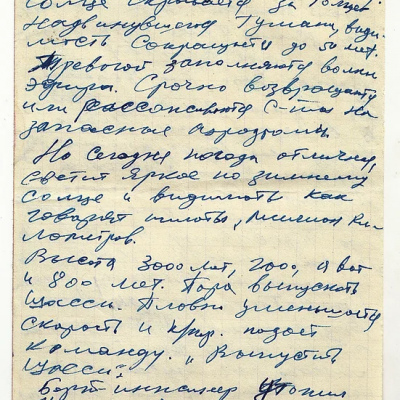 солнце скрывается за
надвинувшегося тумана, види-
мость сокращается до 50 мет.
Тревогой заполняются волны
эфира. Срочно возвращают
или рассаживаются с-ты на
запасные аэродромы.
Но сегодня погода отличная,
светит яркое по зимнему
солнце и видимость как
говорят пилоты, "миллион ки-
лометров.
Высота 3000 мет, 2000, а вот
и 800 мет. Пора выпускать
шасси. Плавно уменьшается
скорость и кмр. подает
команду. "Выпустить
шасси"
Борт-инженер